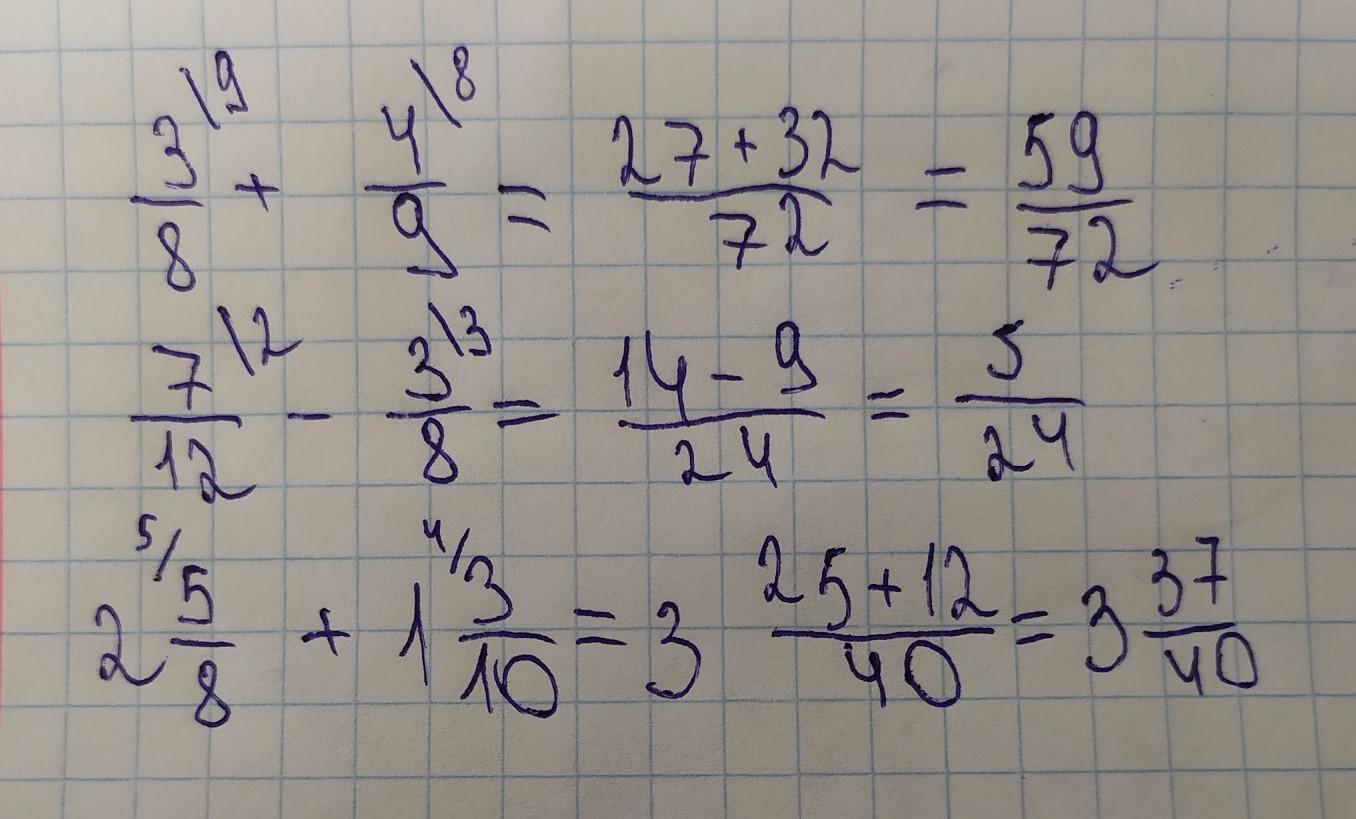 3\9/8 + 4\8/9 = 27+32/72 = 59/72
7\2/12 - 3\3/8 = 14-9/24 = 5/24
2 5/5/8 + 1 4/3/10 = 3 25+12/40 = 3 37/40